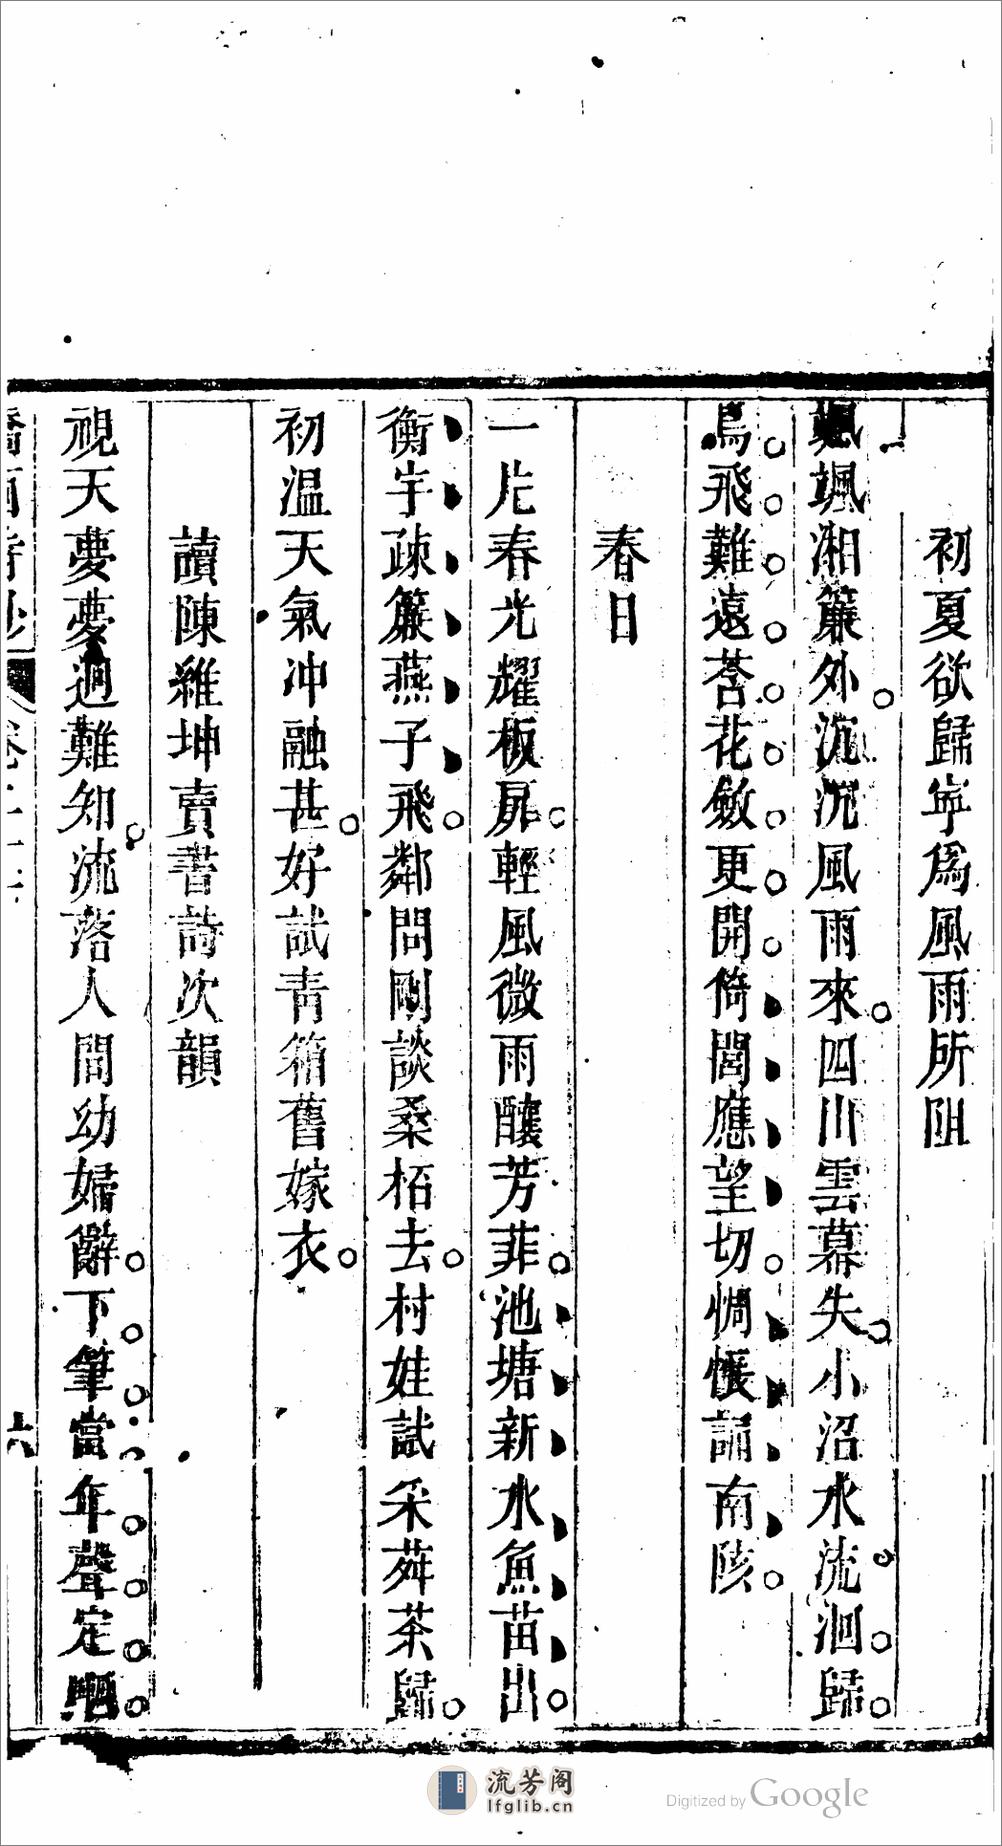 初夏欲歸寧爲風雨所阻
颯颯湘簾外沉沉風雨來四山雲幕失小沼水流洄歸
鳥飛難遠荅花斂更開倚閭應望切惆悵誦南陔
春日
一片春光耀板扉輕風微雨釀芳菲池塘新水魚苗出
衡宇疎簾燕子飛鄰問剛談桑柘去村娃試采荈茶歸
初温天氣冲融甚好試青箱舊嫁衣
讀陳維坤賣書詩次韻
視天夢夢迥難知流落人間幼婦辭下筆當年聲定
六
流芳阁
lfglib.cn
Digitized by Google